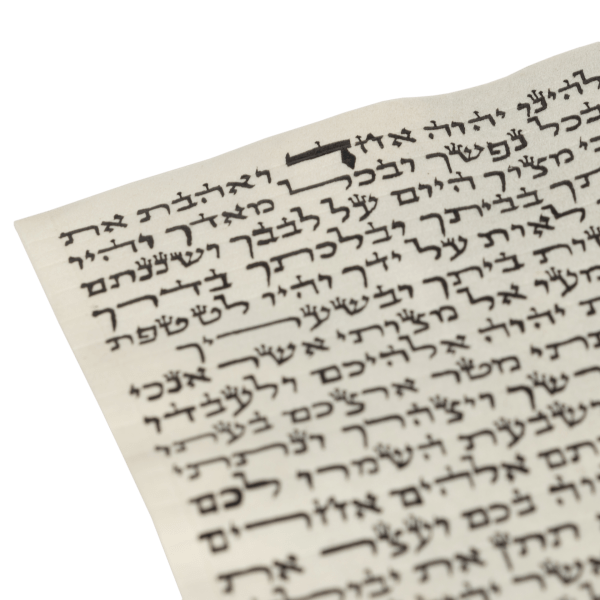 יהוה אחד ואהבת את
נפשך ובכל מאדך והיו
מצוך היום על לבבך ושננתם
בביתך ובלכתך בדרך
לאות על ידך והיו לטטפת
ביתך ובשעריך
אל מצותי אשר אנכי
יהוה אלהיכם ולעבדו
מטר ארצכם בעתו
ויצהרך ונתתי
ושבעת השמרו לכם
אלהים אחרים
בכם ועצר את
תתן את